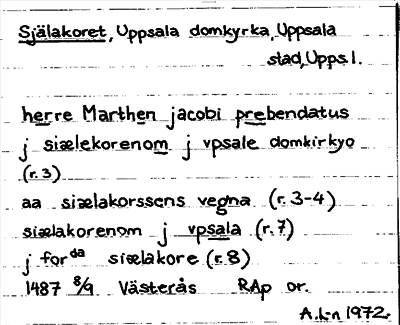 Själakoret, Uppsala domkyrka, Uppsala
stad, Upps. l.
herre Marthen jacobi prebendatus
j siælekorenom j vpsale domkirkyo
(r. 3)
aa siælakorssens vegna (r. 3-4)
siælakorenom j vpsala (r. 7)
j for da siælakore (r. 8)
1487 8/9 Västerås RAp or.
A. L-n 1972.